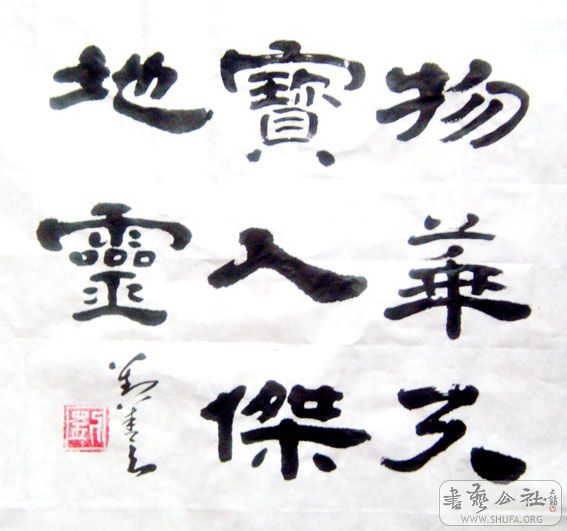 物華天
寶人傑
地靈
書藝公社
WWW.SHUFA.ORG